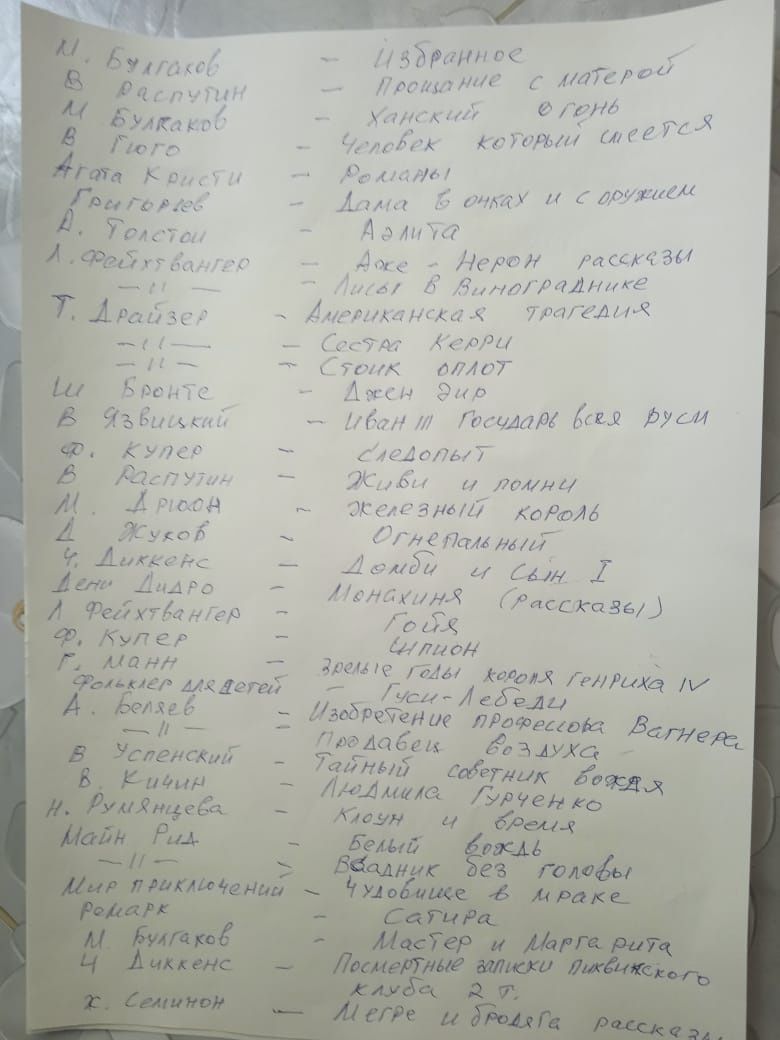 М. Булгаков – Избранное
В Распутин – Прощание с матерой
М Булгаков – Ханский огонь
В Гюго – Человек который смеется
Агата Кристи – Романы
Григорьев – Дама в очках и с оружием
А. Толстои – Аэлита
Л. Фейхтвангер – Лже - Нерон рассказы
—〃— – Лисы в Винограднике
Т. Драйзер – Американская трагедия
—〃— – Сестра Керри
—〃— – Стоик оплот
Ш Бронте – Джен Эир
В Язвицкий – Иван III Государь всея руси
Ф. Купер – Следопыт
В Распутин – Живи и помни
М. Дрюон – Железный король
Д Жуков – Огнепальный
Ч. Диккенс – Домби и Сын I
Дени Дидро – Монахиня (рассказы)
Л Фейхтвангер – Гойя
Ф. Купер – Шпион
Г. Манн – Зрелые годы короля Генриха IV
Фольклер для детей – Гуси-Лебеди
А. Беляев – Изобретение професиова Вагнера
—〃— – Продавец воздуха
В Успенский – Тайный советник вождя
В. Кичин – Людмила Гурченко
Н. Румянцева – Клоун и время
Майн Рид – Белый вождь
—〃— – Всадник без головы
Мир приключений – Чудовище в мраке
Ремарк – Сатира
М. Булгаков – Мастер и Маргарита
Ч Диккенс – Посмертные записки пиквикского
клуба 2 т.
Ж. Семинон – Мегре и бродяга рассказы